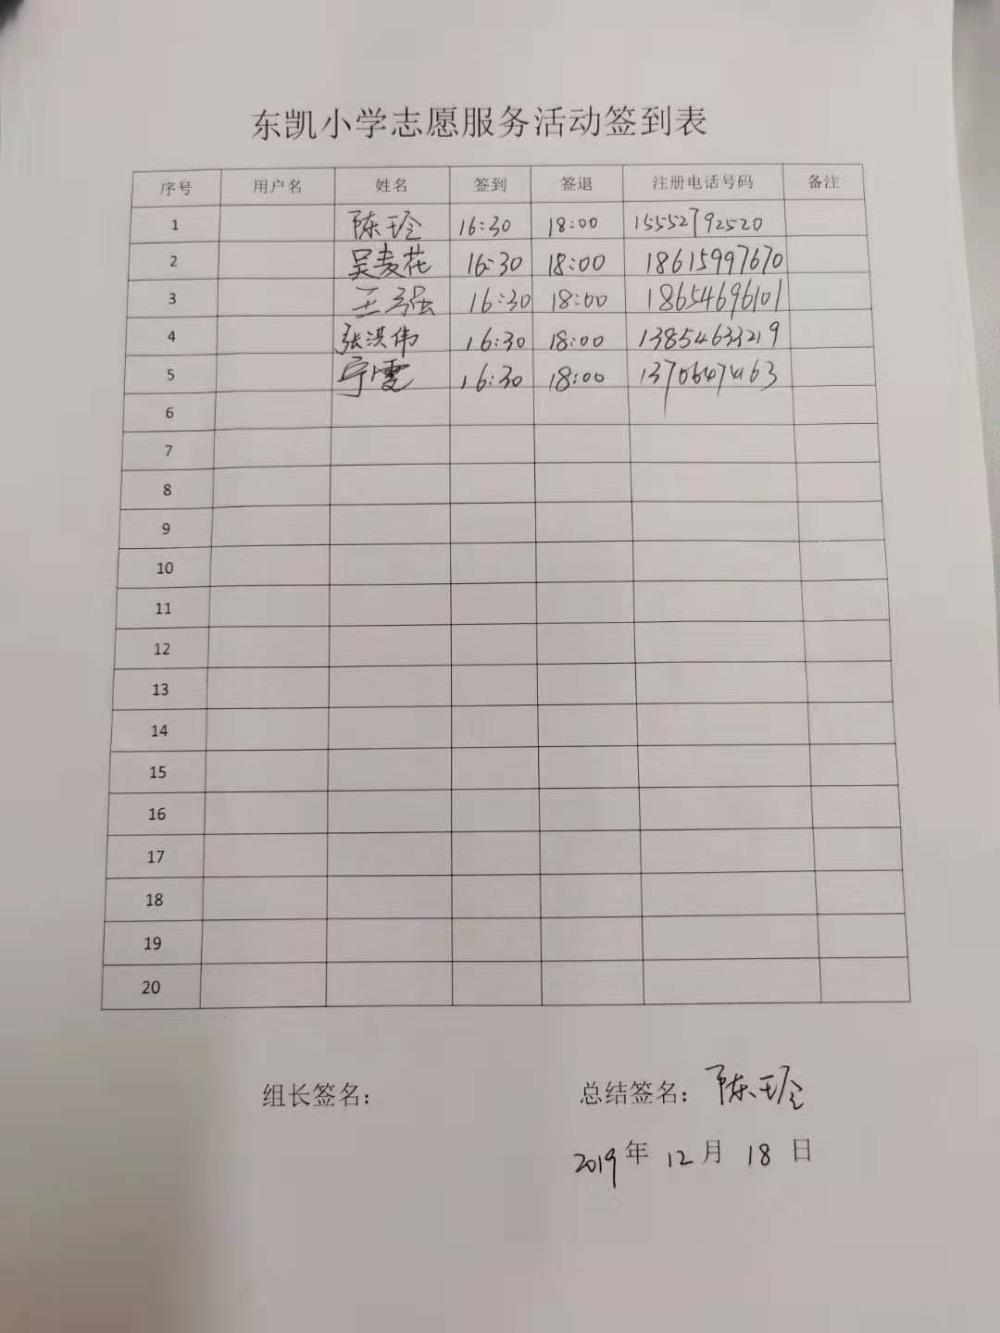 东凯小学志愿服务活动签到表
序号 用户名 姓名 签到 签退 注册电话号码 备注
1 陈玲 16:30 18:00 15552792520
2 吴麦花 16:30 18:00 18615997670
3 王强 16:30 18:00 18654696101
4 张洪伟 16:30 18:00 13854633219
5 宁雯 16:30 18:00
6
7
8
9
10
11
12
13
14
15
16
17
18
19
20
组长签名： 总结签名：陈玲
2019年 12月 18日